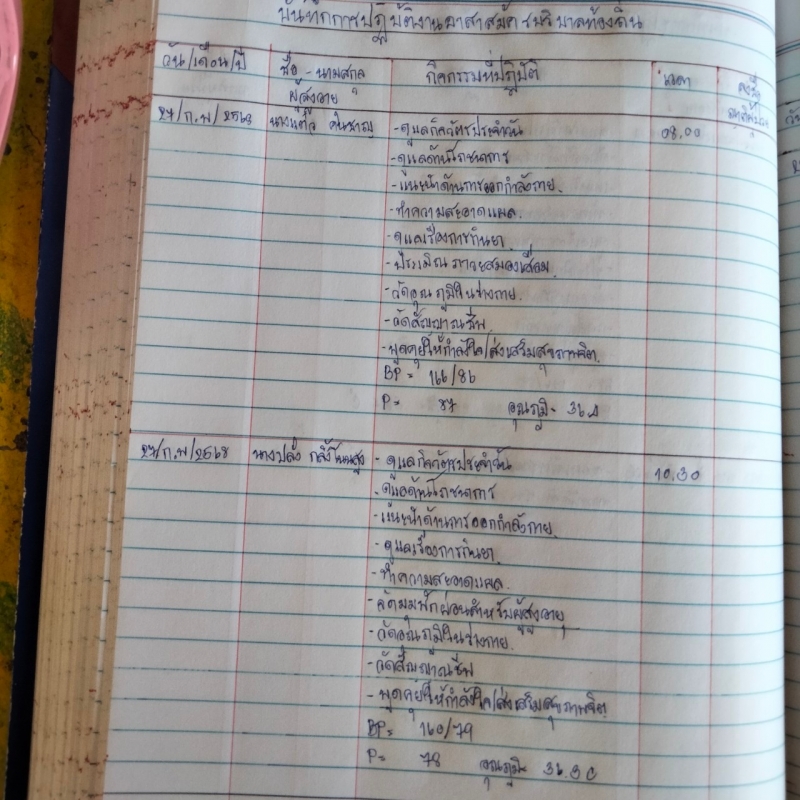 บันทึกการปฏิบัติงานอาสาสมัครบริบาลท้องถิ่น
วัน/เดือน/ปี ชื่อ - นามสกุล ผู้สูงอายุ กิจกรรมที่ปฏิบัติ เวลา ลงชื่อ
27/ก.พ/2568 นางแก้ว - ดูแลกิจวัตรประจำวัน 08.00
- ดูแลด้านโภชนาการ
- แนะนำด้านการออกกำลังกาย.
- ทำความสะอาดแผล.
- ดูแลเรื่องการกินยา.
- ประเมินภาวะสมองเสื่อม.
- วัดอุณภูมิในร่างกาย.
- วัดสัญญาณชีพ.
- พูดคุยให้กำลังใจ/ส่งเสริมสุขภาพจิต.
BP = 166/86
P = 87 อุณภูมิ- 36.
27/ก.พ/2568 นางปลั่ง - ดูแลกิจวัตรประจำวัน 10.30
- ดูแลด้านโภชนาการ
- แนะนำด้านการออกกำลังกาย.
- ดูแลเรื่องการกินยา.
- ทำความสะอาดแผล.
- จัดมุมพักผ่อนสำหรับผู้สูงอายุ
- วัดอุณภูมิในร่างกาย.
- วัดสัญญาณชีพ
- พูดคุยให้กำลังใจ/ส่งเสริมสุขภาพจิต
BP = 160/79
P = 78 อุณภูมิ- 36.3C